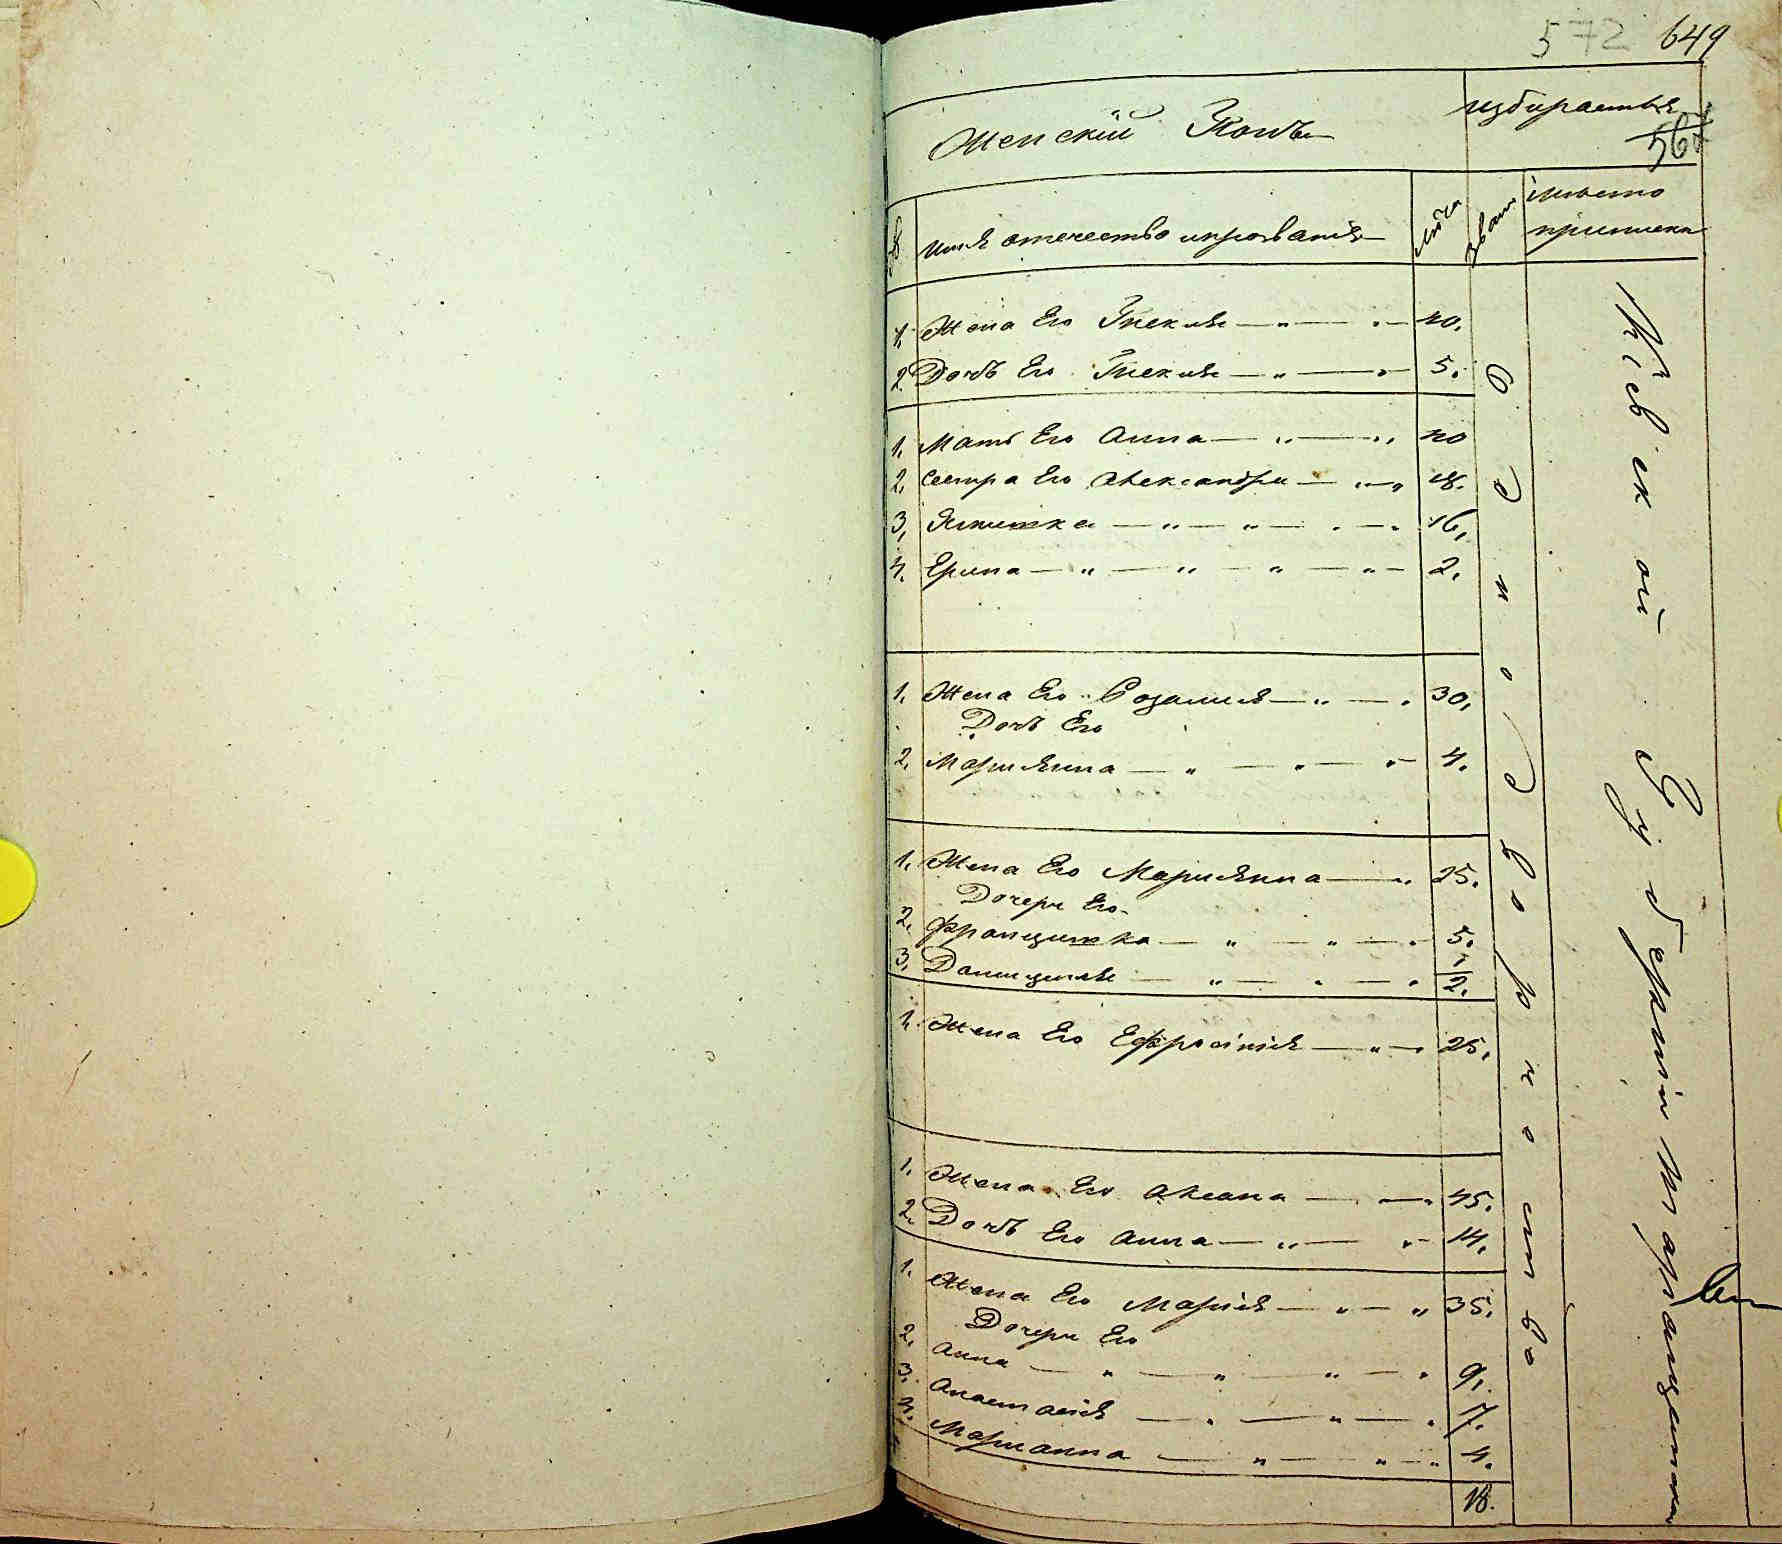 572 649
Женскій Полъ
избирается
56
№
имя отечество ипрозваніе
лѣта
зван
место
приписки
1. Жена Его Текля — „ — „ — 40.
2. Дочь Его Текля — „ — „ — 5.
1. Мать Его Анна — „ — „ 40
2. Сестра Его Александра — „ — „ 18.
3, — „ — „ — „ — 16,
4. Ерина — „ — „ — „ — „ — 2.
1. Жена Его Розалия — „ — „ 30,
Дочь Его
2. Мариянна — „ — „ — „ — 4.
1. Жена Его Мариянна — „ 25.
Дочери Его
2. Францишка — „ — „ — „ 5.
3. — „ — „ — „ 2.
1. Жена Его Ефросинія — „ — „ 25.
1. Жена Его Оксана — „ — „ 45.
2. Дочь Его Анна — „ — „ — 14.
1. Жена Его Марія — „ — „ 35.
Дочери Его
2. Анна — „ — „ — „ — „ 9.
3. Анастасія — „ — „ — „ 7.
4. Марианна — „ — „ — „ 4.
18.
Однодворчество
Кіевской Губерніи